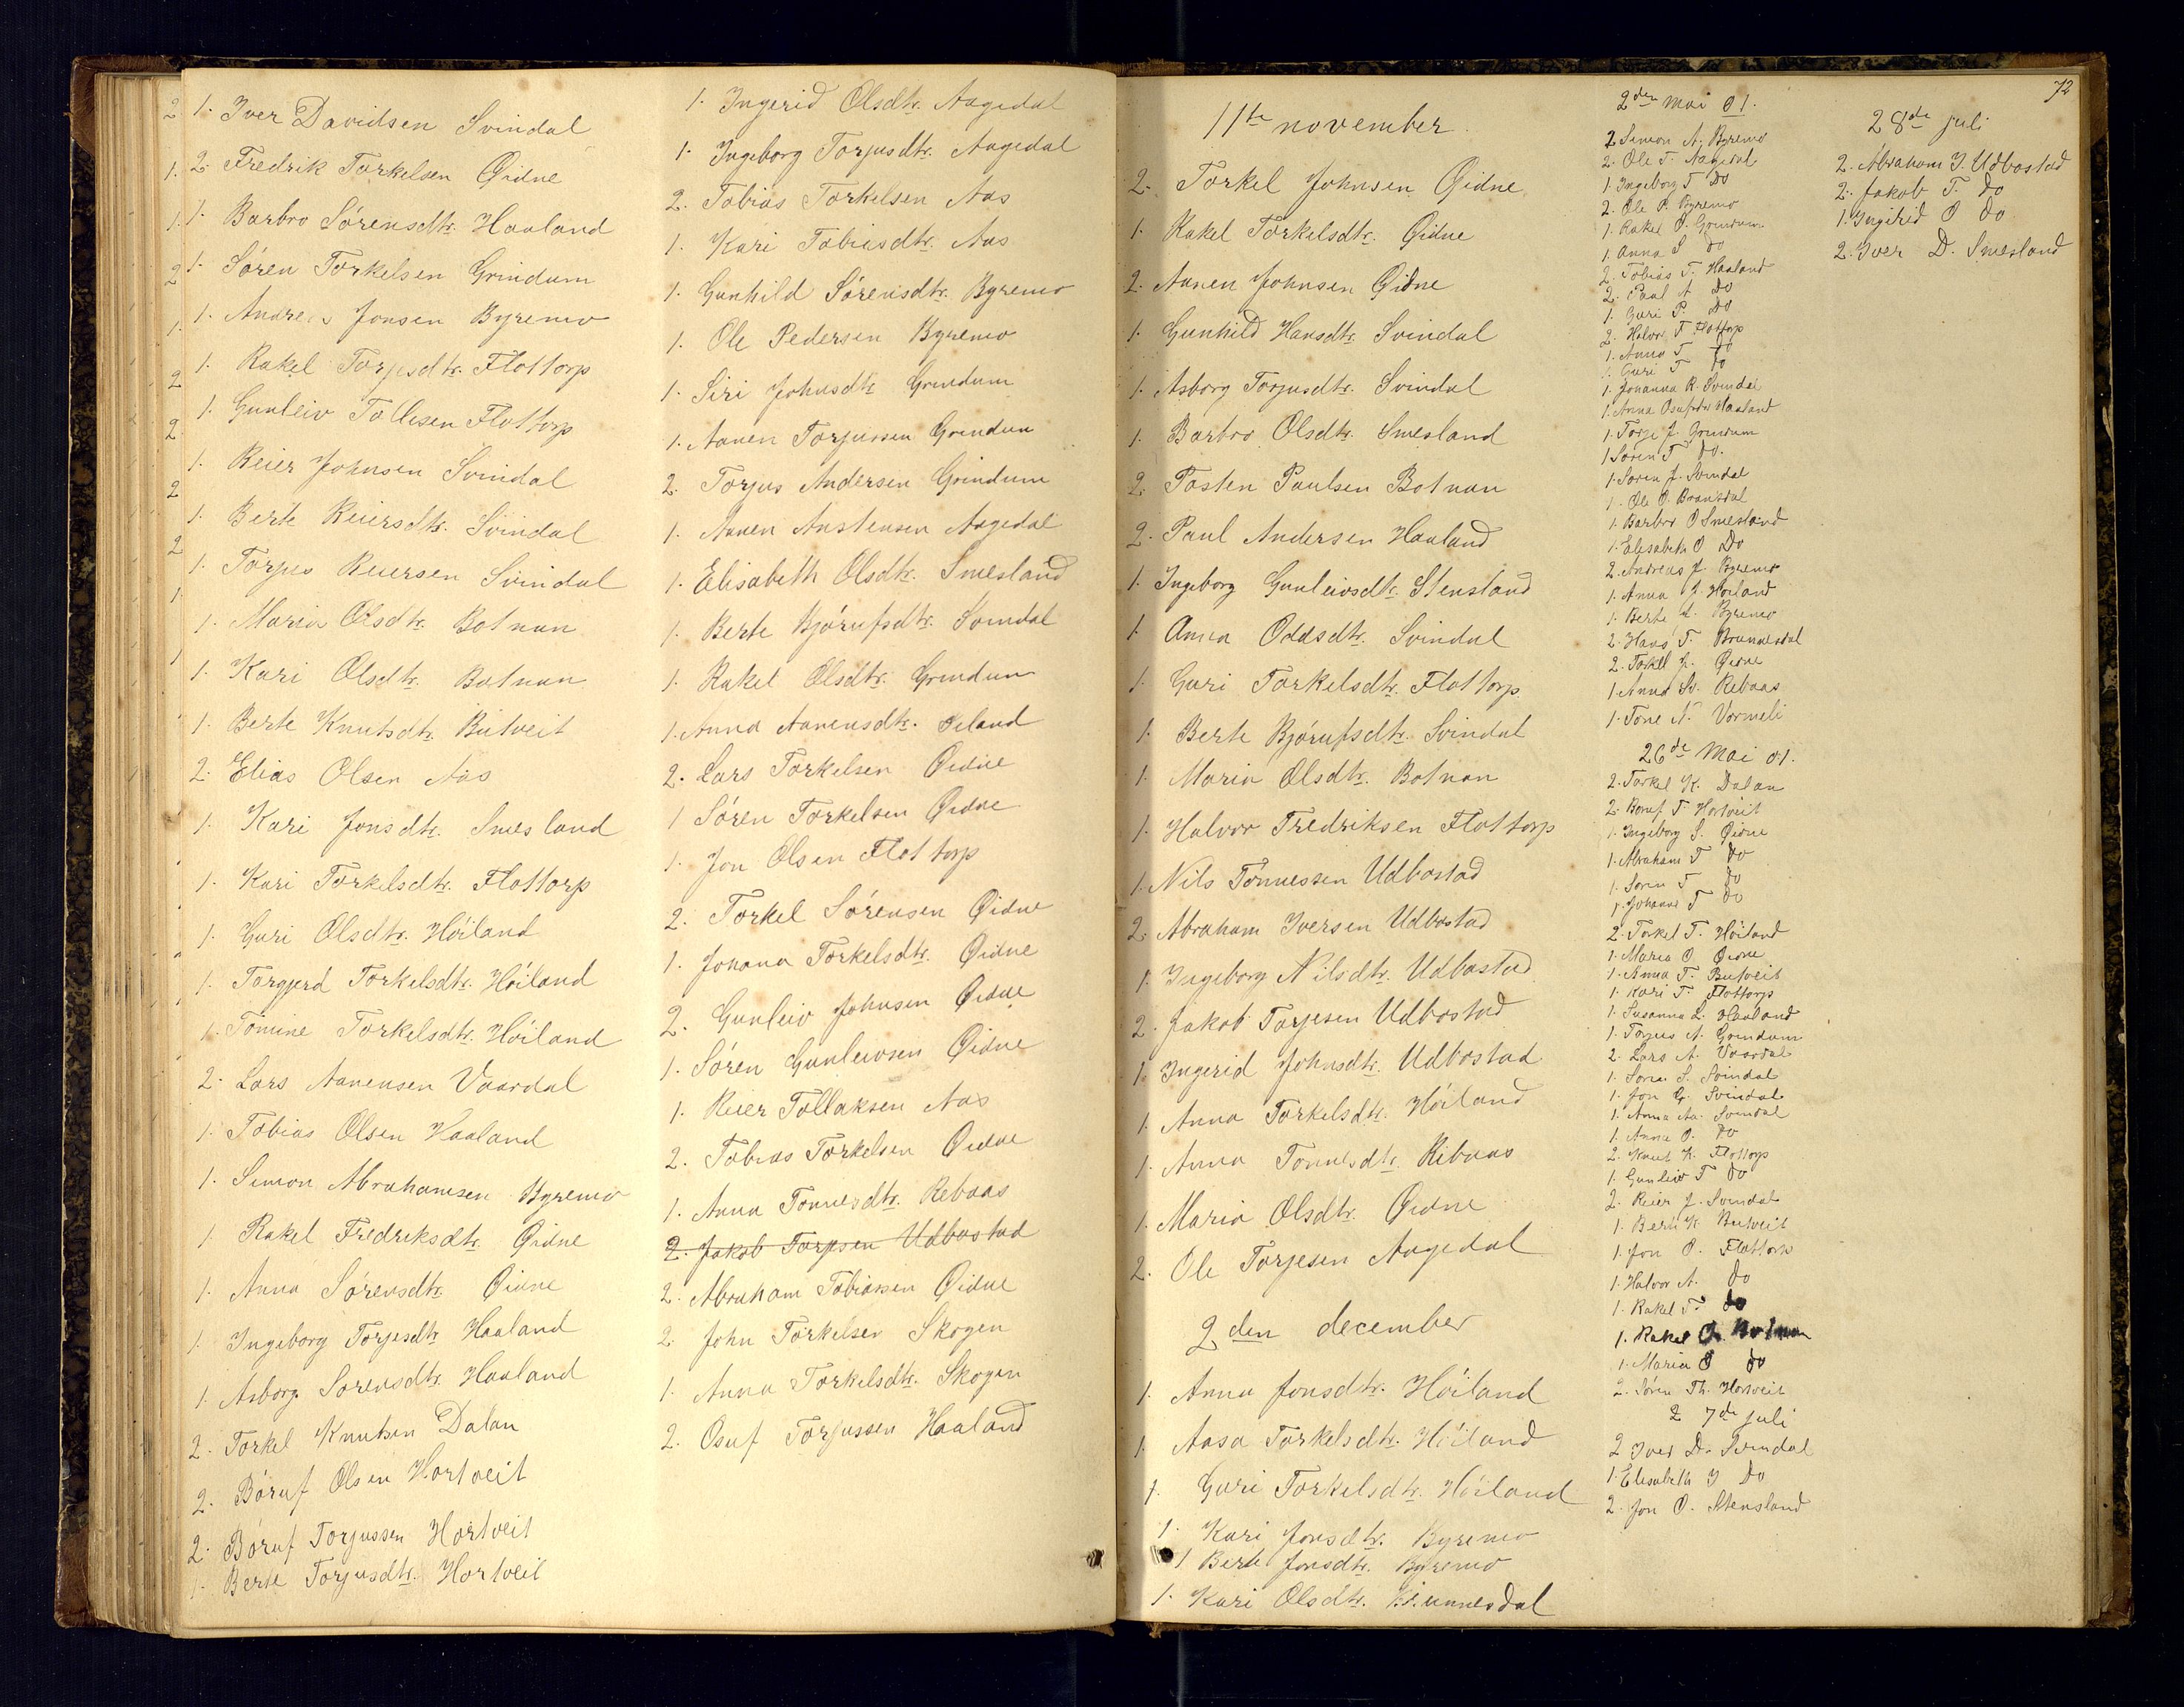 1. Iver Davidsen Svindal
2. Fredrik Torkelsen Øidne
1. Barbro Sörensdtr. Haaland
1. Sören Torkelsen Grindum
1. Andreas Jonsen Byremo
1. Rakel Torjesdtr. Flottorp
1. Gunleiv Tollesen Flottorp
1. Reier Johnsen Svindal
1. Berte Reiersdtr. Svindal
1. Torjus Reiersen Svindal
1. Maria Olsdtr. Botnan
1. Kari Olsdtr. Botnan
1. Berte Knutsdtr. Butveit
2. Elias Olsen Aas
1. Kari Jonsdtr. Smesland
1. Kari Torkelsdtr. Flottorp
1. Guri Olsdtr. Höiland
1. Torgjerd Torkelsdtr. Höiland
1. Tomine Torkelsdtr. Höiland
2. Lars Aanensen Vaardal
1. Tobias Olsen Haaland
1. Simon Abrahamsen Byremo
1. Rakel Fredriksdtr. Øidne
1. Anna Sörensdtr. Øidne
1. Ingeborg Torjesdtr. Haaland
1. Asborg Sorensdtr. Haaland
2. Torkel Knutsen Dalan
2. Böruf Olsen Hortveit
2. Böruf Torjussen Hortveit
1. Berte Torjusdtr. Hortveit
1. Ingerid Olsdtr. Aagedal
1. Ingeborg Torjusdtr. Aagedal
2. Tobias Torkelsen Aas
1. Kari Tobiasdtr. Aas
1. Gunhild Sörensdtr. Byremo
1. Ole Pedersen Byremo
1. Siri Johnsdtr. Grindum
1. Aanen Torjussen Grindum
2. Torjus Andersen Grindum
1. Aanen Anstensen Aagedal
1. Elisabeth Olsdtr. Smesland
1. Berte Bjórufsdtr. Svindal
1. Rakel Olsdtr. Grindum
1. Anna Aanensdtr.
2. Lars Torkelsen Øidne
1 Sören Torkelsen Øidne
1. Jon Olsen Flottorp
2. Torkel Sörensen Øidne
1. Johana Torkelsdtr. Øidne
2. Gunleiv Johnsen Øidne
1. Sören Gunleivsen Øidne
1. Reier Tollaksen Aas
2. Tobias Torkelsen Øidne
1. Anna Tönnesdtr. Rebaas
2. Jakob Torjesen Udbostad
2. Abraham Tobiassen Øidne
2. John Torkelsen Skogen
1. Anna Torkelsdtr. Skogen
2. Osuf Torjussen Haaland
72
11te november
2. Torkel Johnsen Øidne
1. Rakel Torkelsdtr. Øidne
2. Aanen Johnsen Øidne
1. Gunhild Hansdtr. Svindal
1. Asborg Torjusdtr. Svindal
1. Barbro Olsdtr. Smesland
2. Tosten Paulsen Botnan
2. Paul Andersen Haaland
1. Ingeborg Gunleivsdtr. Stensland
1. Anna Oddsdtr. Svindal
1. Guri Torkelsdtr. Flottorp.
1. Berte Bjórufsdtr. Svindal
1. Maria Olsdtr. Botnan
1. Halvor Fredriksen Flottorp
1. Nils Tönnessen Udbostad
2. Abraham Iversen Udbostad
1. Ingeborg Nilsdtr. Udbostad
2. Jakob Torjesen Udbostad
1. Ingerid Johnsdtr. Udbostad
1. Anna Torkelsdtr. Höiland
1. Anna Tönnesdtr. Ribaas
1. Maria Olsdtr. Øidne
2. Ole Torjesen Aagedal
2den december
1. Anna Jonsdtr. Höiland
1. Aasa Torkelsdtr. Höiland
1. Guri Torkelsdtr. Höiland
1. Kari Jonsdtr. Byremo
1 Berte Jonsdtr. Byremo
1. Kari Olsdtr.
2den Mai 01.
2. Simon A. Byremo
2. Ole T. Aagedal
1. Ingeborg T Do
2. Ole P. Byremo
1. Rakel O. Grindum
1. Anna S Do
2. Tobias T. Haaland
2. Paul A Do
1. Guri P. Do
2. Halvor T Flottorp
1. Anna T Do
1. Guri T Do
1. Johanna R. Svindal
1. Anna Osufsdtr Haaland
1. Torje J. Grindum
1 Sören T Do.
1. Sören J. Svindal
1. Ole O.
1. Barbro O Smesland
1. Elisabeth O Do
2. Andreas J. Byremo
1. Anna J. Höiland
1. Berte J. Byremo
2. Hans T.
2. Torkel J. Øidne
1. Anna Rebaas
1. Tone N. Vormeli
26de Mai 01.
2. Torkel K. Dalan
2. Boruf T Hortveit
1. Ingeborg S. Øidne
1. Abraham T Do
1. Sören T Do
1. Johanna T Do
2. Torkel T. Höiland
1. Maria O. Øidne
1. Anna T. Butveit
1. Kari T. Flottorp
1. Susanna L. Haaland
1. Torjus A. Grindum
2. Lars A. Vaardal
1. Sören S. Svindal
1. Jon G. Svindal
1. Anna Aa. Svindal
1. Anna O. Do
2. Knut K. Flottorp
1. Gunleiv T Do
2. Reier J. Svindal
1. Berte K. Butveit
1. Jon O. Flottorp
1. Halvor A. Do
1. Rakel T. Do
1. Rakel O. Botnan
1. Maria O Do
2. Sören Th. Hortveit
2 7de juli
2 Iver D. Svindal
1. Elisabeth I Do
2. Jon O. Stensland
28de juli
2. Abraham I. Udbostad
2. Jakob T. Do
1. Ingerid O Do
2. Iver D. Smesland